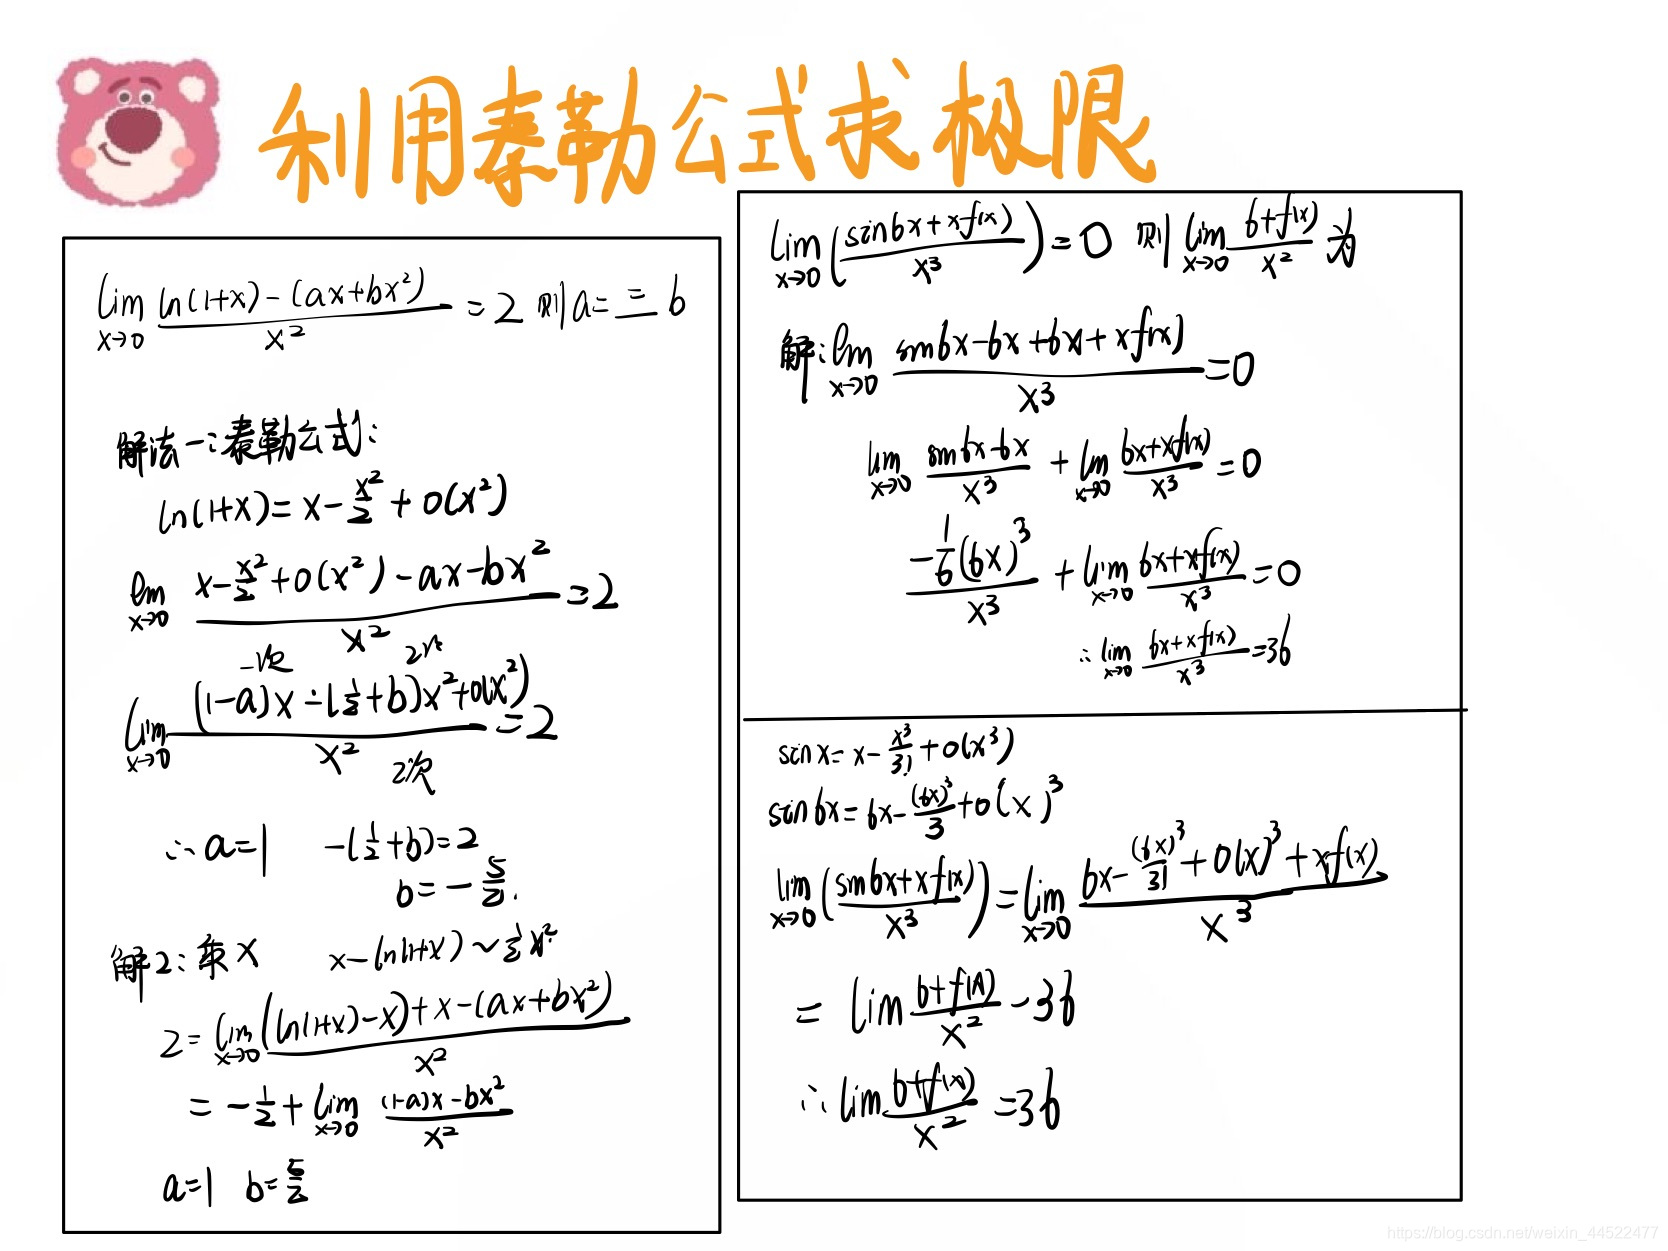 利用泰勒公式求极限
lim x→0 ln(1+x)-(ax+bx²) / x² = 2 则a= = b
解法一:泰勒公式:
ln(1+x)= x - x²/2 + o(x²)
lim x→0 x - x²/2 + o(x²) - ax - bx² / x² = 2
一次 2次
lim x→0 (1-a)x - (1/2+b)x² + o(x²) / x² = 2
2次
∴ a=1 -(1/2+b)=2
b= - 5/2.
解2: 乘x x-ln(1+x) ~ 1/2 x²
2= lim x→0 (ln(1+x)-x)+x-(ax+bx²) / x²
= -1/2 + lim x→0 (1-a)x - bx² / x²
a=1 b= 5/2
lim x→0 (sin6x+xf(x) / x³) = 0 则 lim x→0 6+f(x) / x² 为
解: lim x→0 sin6x-6x+6x+xf(x) / x³ = 0
lim x→0 sin6x-6x / x³ + lim x→0 6x+xf(x) / x³ = 0
-1/6(6x)³ / x³ + lim x→0 6x+xf(x) / x³ = 0
∴ lim x→0 6x+xf(x) / x³ = 36
sinx= x - x³/3! + o(x³)
sin6x= 6x - (6x)³/3 + o(x)³
lim x→0 (sin6x+xf(x) / x³) = lim x→0 6x - (6x)³/3! + o(x)³ + xf(x) / x³
= lim 6+f(x) / x² - 36
∴ lim 6+f(x) / x² = 36
https://blog.csdn.net/weixin_44522477